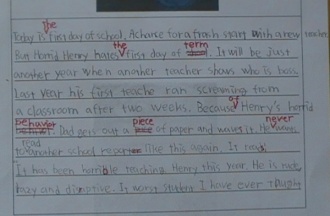 the
Today is first day of school. A chance for a fresh start with a new teacher
the term
But Horrid Henry hates first day of . It will be just
another year when another teacher shows who is boss.
Last year his first teache ran screaming from
of
a classroom after two weeks. Because Henry's horrid
behavior piece never
. Dad gets out a of paper and waves it. He
read
another school report like this again. It read
It has been horrible teaching Henry this year. He is rude,
lazy and disruptive. It worst student I have ever taught